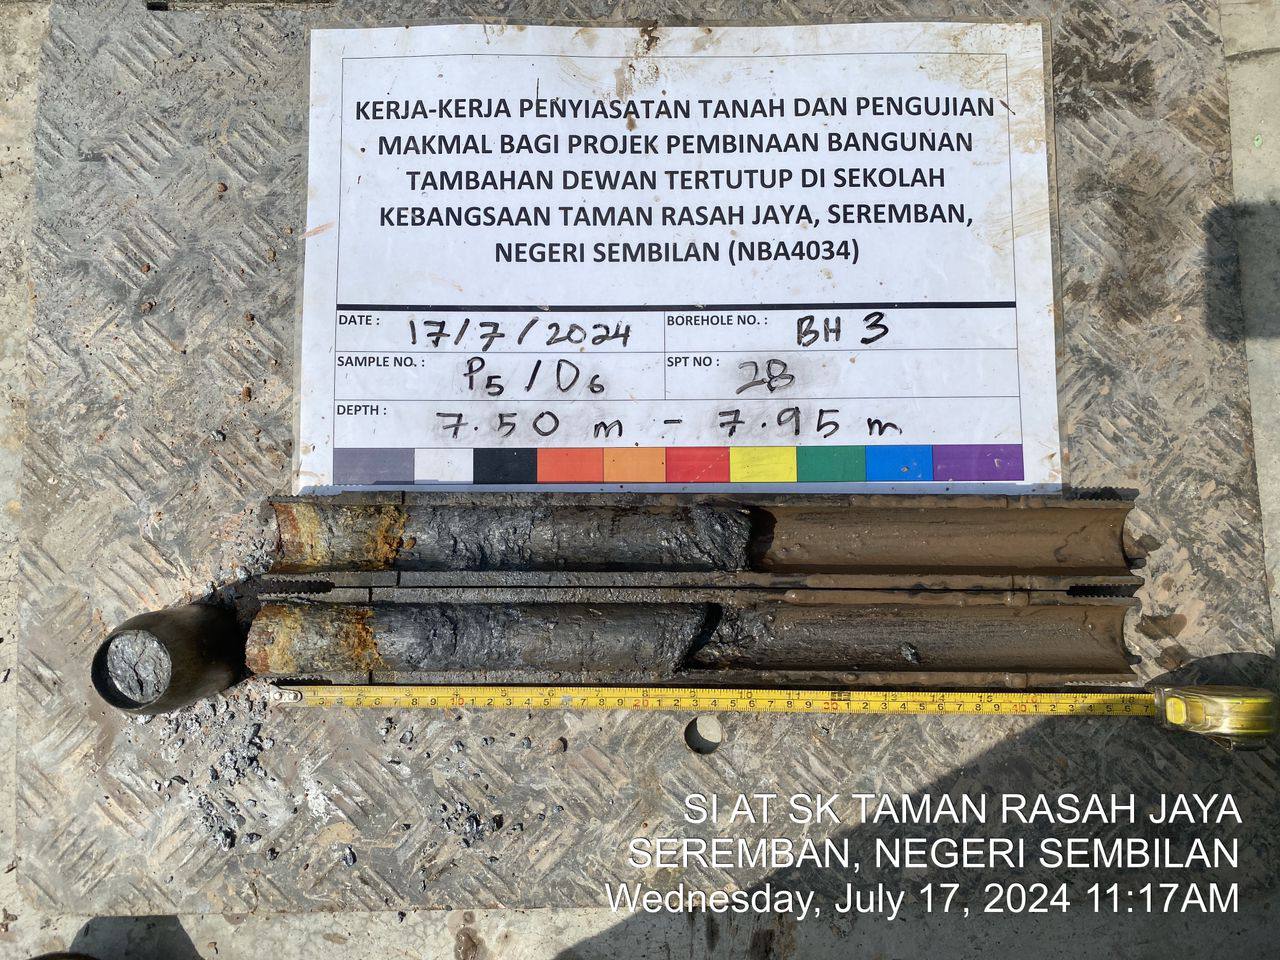 KERJA-KERJA PENYIASATAN TANAH DAN PENGUJIAN
MAKMAL BAGI PROJEK PEMBINAAN BANGUNAN
TAMBAHAN DEWAN TERTUTUP DI SEKOLAH
KEBANGSAAN TAMAN RASAH JAYA, SEREMBAN,
NEGERI SEMBILAN (NBA4034)
DATE : 17/7/2024 BOREHOLE NO. : BH 3
SAMPLE NO. : P5/D6 SPT NO : 28
DEPTH : 7.50 m - 7.95 m
SI AT SK TAMAN RASAH JAYA
SEREMBAN, NEGERI SEMBILAN
Wednesday, July 17, 2024 11:17AM